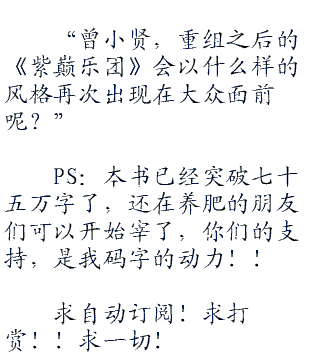 “曾小贤，重组之后的
《紫巅乐团》会以什么样的
风格再次出现在大众面前
呢？”
PS：本书已经突破七十
五万字了，还在养肥的朋友
们可以开始宰了，你们的支
持，是我码字的动力！！
求自动订阅！求打
赏！！求一切！